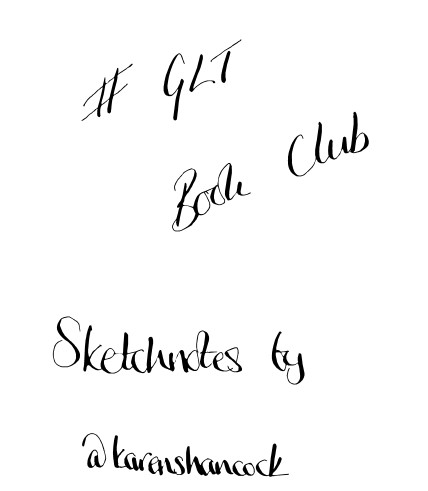 # GLT
Book Club
Sketchnotes by
@karenshancock